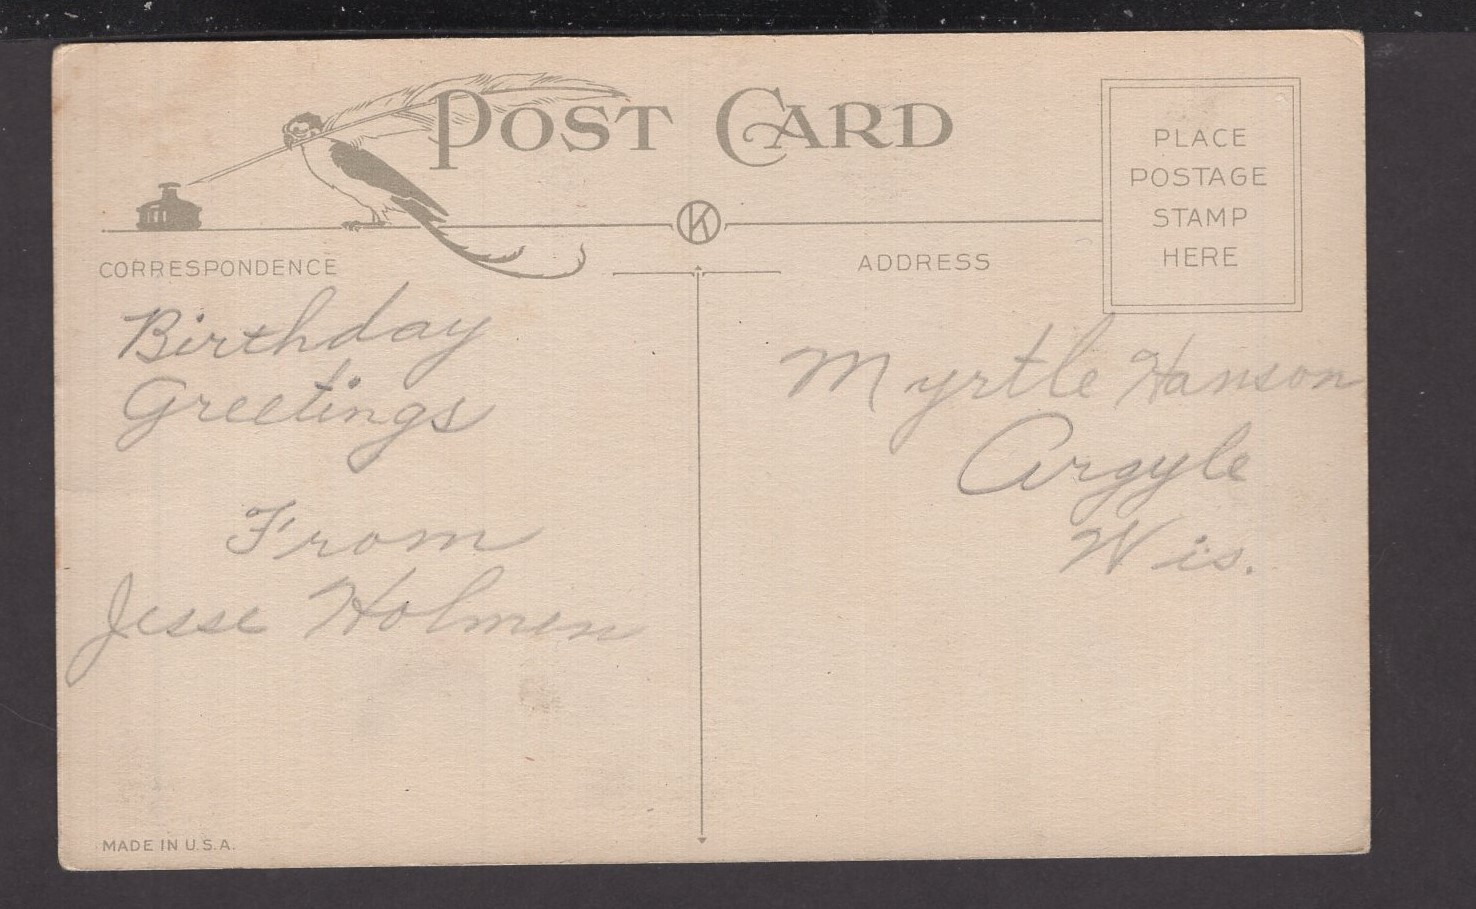 POST CARD
PLACE
POSTAGE
STAMP
HERE
K
CORRESPONDENCE
ADDRESS
Birthday
Greetings
From
Jesse Holmen
Myrtle Hanson
Argyle
Wis.
MADE IN U.S.A.